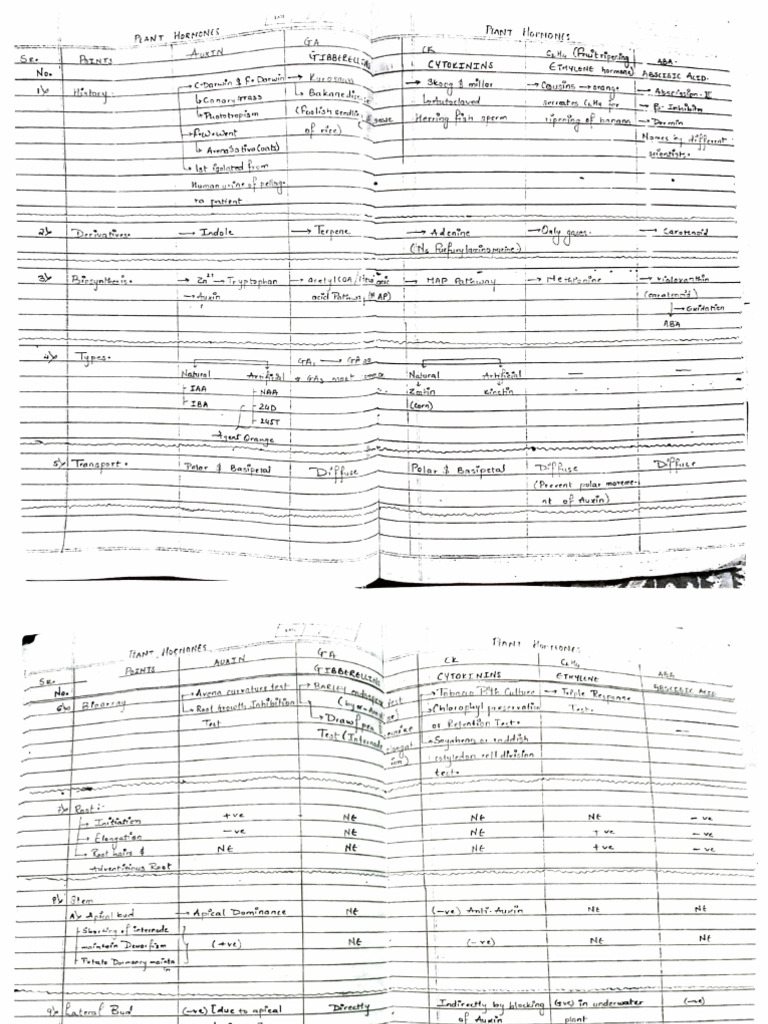 PLANT HORMONES
PLANT HORMONES
Sr. No.
POINTS
AUXIN
GA
GIBBERELLINS
CK
CYTOKININS
C₂H₄ (Fruit ripening
ETHYLENE hormone)
ABA
ABSCISIC ACID
1) History
→ C-Darwin & F. Darwin
↳ Canary grass
↳ Phototropism
→ F.W. Went
↳ Avena Sativa (oats)
↳ 1st isolated from
Human urine of pellag-
ra patient
→ Kurosawa
↳ Bakane disease
(Foolish seedling
of rice)
→ Skoog & miller
↳ Autoclaved
Herring fish sperm
→ Cousins → orange
secreates C₂H₄ for
ripening of banana
→ Abscission-II
→ β-Inhibitn
→ Dormin
Names by different
scientists.
2) Derivatives.
→ Indole
→ Terpene
→ Adenine
(N₆ Furfurylaminopurine)
→ Only gases.
→ Carotenoid
3) Biosynthesis.
→ Zn²⁺ → Tryptophan
→ Auxin
→ acetyl COA/
acid Pathway (MAP)
→ MAP Pathway
→ Methionine
→ violaxanthin
(carotenoid)
↳ Oxidation
ABA
4) Types.
Natural
Artificial
IAA
NAA
IBA
24D
245T
→ Agent Orange
GA₁ → GA
* GA₃ most
Natural
Artificial
Zeatin
Kinetin
(corn)
—
—
5) Transport.
Polar & Basipetal
Diffuse
Polar & Basipetal
Diffuse
(Prevent polar moveme-
nt of Auxin)
Diffuse
PLANT HORMONES
PLANT HORMONES
Sr. No.
POINTS
AUXIN
GA
GIBBERELLINS
CK
CYTOKININS
C₂H₄
ETHYLENE
ABA
ABSCISIC ACID
6) Bioassay
→ Avena curvature test
→ Root Growth Inhibition
Test
→ BARLEY endosperm test
→ Dwarf pea
Test (Internode
→ Tobacco Pith Culture
→ Chlorophyll preservation
or Retention Test.
→ Soyabean or raddish
cotyledon cell division
test.
→ Triple Response
Test.
—
7) Root :-
↳ Initiation
+ve
NE
NE
NE
-ve
↳ Elongation
-ve
NE
NE
+ve
-ve
↳ Root hairs &
Adventitious Root
NE
NE
NE
+ve
-ve
8) Stem
A) Apical bud
→ Apical Dominance
NE
(-ve) Anti-Auxin
NE
NE
Shorting of internode
maintain Dewarfism
Potato Dormancy maintain
(+ve)
NE
(-ve)
NE
NE
9) Lateral Bud
(-ve) [due to apical
Directly
Indirectly by blocking
of Auxin
(+ve) in underwater
plant
(-ve)